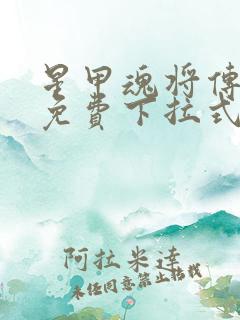 星甲魂将傳
免費下拉式
阿拉米達
未经同意禁止转载